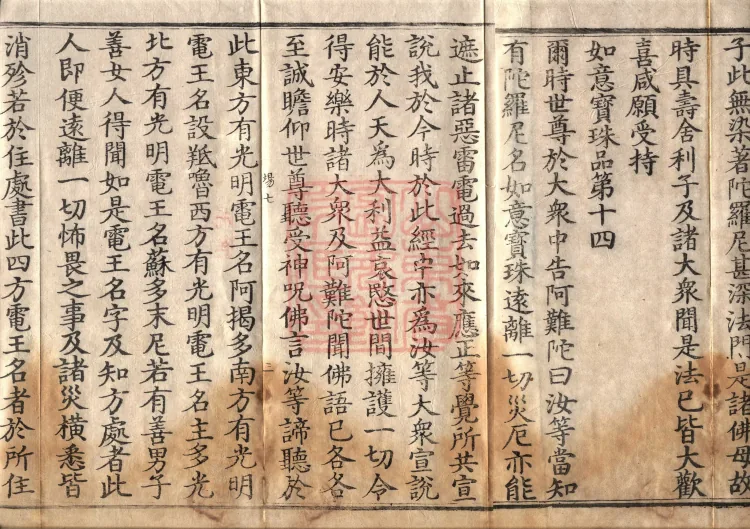 子此無染著陀羅尼甚深法門是諸佛母故
時具壽舍利子及諸大衆聞是法已皆大歡
喜咸願受持
如意寶珠品第十四
爾時世尊於大衆中告阿難陀曰汝等當知
有陀羅尼名如意寶珠遠離一切災厄亦能
遮止諸惡雷電過去如來應正等覺所共宣
說我於今時於此經中亦爲汝等大衆宣說
能於人天爲大利益哀愍世間擁護一切令
得安樂時諸大衆及阿難陀聞佛語已各各
至誠瞻仰世尊聽受神呪佛言汝等諦聽於
場七 二
此東方有光明電王名阿揭多南方有光明
電王名設羝嚕西方有光明電王名主多光
北方有光明電王名蘇多末尼若有善男子
善女人得聞如是電王名字及知方處者此
人即便遠離一切怖畏之事及諸災橫悉皆
消殄若於住處書此四方電王名者於所住